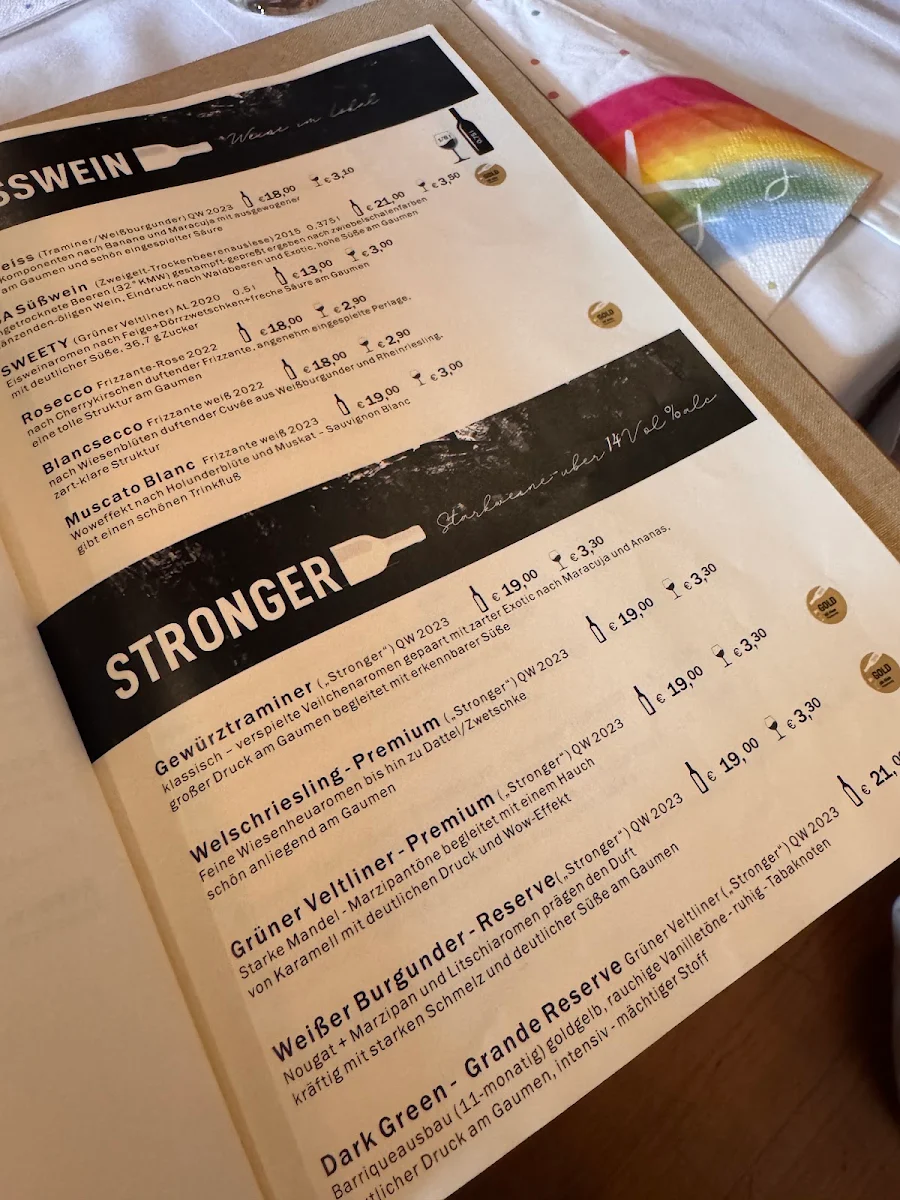 SSWEIN Weine im Lokal
eiss (Traminer/Weißburgunder) QW 2023 € 18,00 € 3,10
Komponenten nach Banane und Maracuja mit ausgewogener
am Gaumen und schön eingespielter Säure
A Süßwein (Zweigelt-Trockenbeerenauslese) 2015 0,375 l € 21,00 € 3,50
ngetrocknete Beeren (32° KMW) gestampft-gepreßt ergeben nach zwiebelschalenfarben
änzenden-öligen Wein, Eindruck nach Waldbeeren und Exotic, hohe Süße am Gaumen
SWEETY (Grüner Veltliner) AL 2020 0,5 l € 13,00 € 3,00
Eisweinaromen nach Feige+Dörrzwetschken+freche Säure am Gaumen
mit deutlicher Süße, 36,7 g Zucker
Rosecco Frizzante-Rose 2022 € 18,00 € 2,90
nach Cherrykirschen duftender Frizzante, angenehm eingespielte Perlage,
eine tolle Struktur am Gaumen
Blancsecco Frizzante weiß 2022 € 18,00 € 2,90
nach Wiesenblüten duftender Cuvée aus Weißburgunder und Rheinriesling,
zart-klare Struktur
Muscato Blanc Frizzante weiß 2023 € 19,00 € 3,00
Woweffekt nach Holunderblüte und Muskat – Sauvignon Blanc
gibt einen schönen Trinkfluß
GOLD
GOLD
STRONGER Starkweine über 14 Vol % alc
Gewürztraminer („Stronger“) QW 2023 € 19,00 € 3,30
klassisch – verspielte Veilchenaromen gepaart mit zarter Exotic nach Maracuja und Ananas,
großer Druck am Gaumen begleitet mit erkennbarer Süße
Welschriesling - Premium („Stronger“) QW 2023 € 19,00 € 3,30
Feine Wiesenheuaromen bis hin zu Dattel/Zwetschke
schön anliegend am Gaumen
Grüner Veltliner - Premium („Stronger“) QW 2023 € 19,00 € 3,30
GOLD
Starke Mandel - Marzipantöne begleitet mit einem Hauch
von Karamell mit deutlichen Druck und Wow-Effekt
Weißer Burgunder - Reserve („Stronger“) QW 2023 € 19,00 € 3,30
GOLD
Nougat + Marzipan und Litschiaromen prägen den Duft
kräftig mit starken Schmelz und deutlicher Süße am Gaumen
Dark Green - Grande Reserve Grüner Veltliner („Stronger“) QW 2023 € 21,0
Barriqueausbau (11-monatig) goldgelb, rauchige Vanilletöne - ruhig - Tabaknoten
tlicher Druck am Gaumen, intensiv - mächtiger Stoff